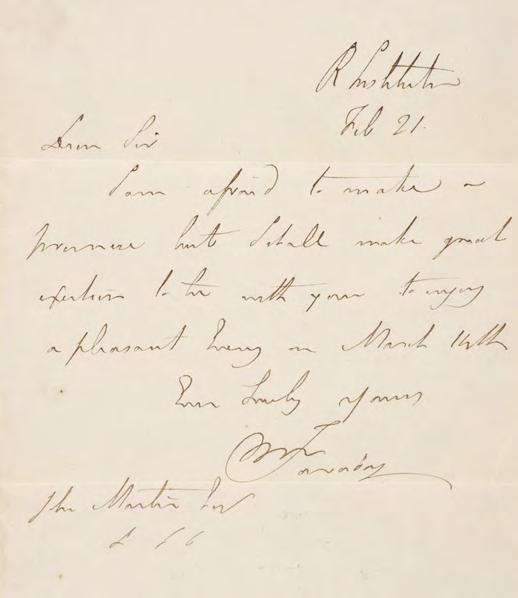 R Institution
Feb 21.
Dear Sir
I am afraid to make a
promise but I shall make great
exertion to be with you to enjoy
a pleasant Evening on March 14th
Ever Truly yours
M Faraday
Jhn Martin Esq
&c &c &c